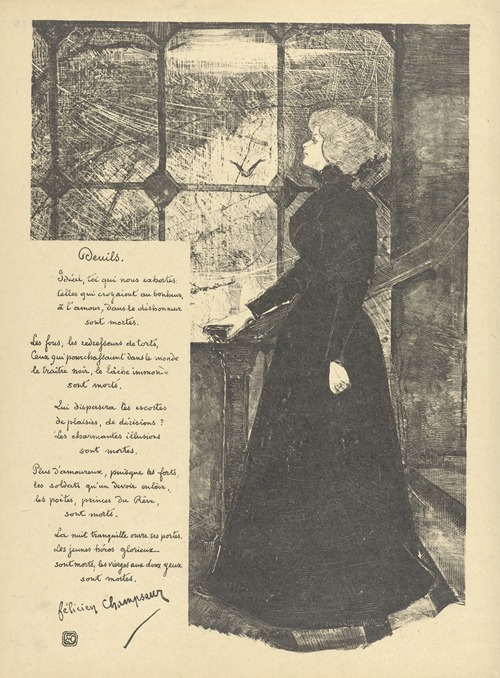 Deuils.
Idéal, toi qui nous exhortes,
Celles qui croyaient au bonheur,
à l'amour, dans le déshonneur
sont mortes.
Les fous, les redresseurs de torts,
Ceux qui pourchassaient dans le monde
le traître noir, le lâche immonde
sont morts.
Qui dispersera les escortes
de plaisirs, de décisions ?
Les charmantes illusions
sont mortes.
Plus d'amoureux, puisque les forts,
les soldats qu'un devoir enlève,
les poètes, princes du Rêve,
sont morts.
La nuit tranquille ouvre ses portes.
Les jeunes héros glorieux
sont morts, les vierges aux doux yeux
sont mortes.
félicien Champsaur